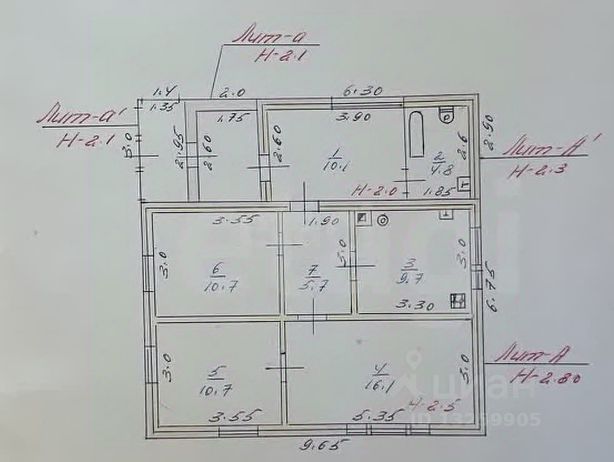 Лит-а
Н-2.1
1.4
2.0
6.30
1.35
1.75
3.90
Лит-а'
Н-2.1
3.0
2.95
2.60
2.60
1
10.1
2
4.8
2.6
2.90
Лит-А'
Н-2.3
Н-2.0
1.85
3.55
1.90
3.0
6
10.7
7
5.7
3.0
3
9.7
3.0
3.30
6.75
Лит-А
Н-2.80
3.0
5
10.7
4
16.1
3.0
Н-2.5
3.55
5.35
9.65
циан
ID 13259905